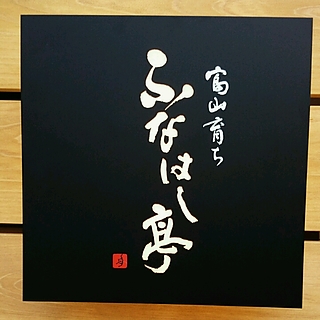 富山育ち
ふなはし亭